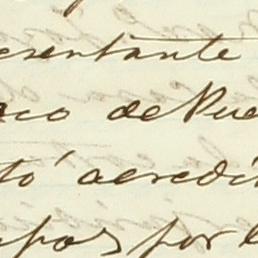 esentante
aco de Pue
tó acredi
por l